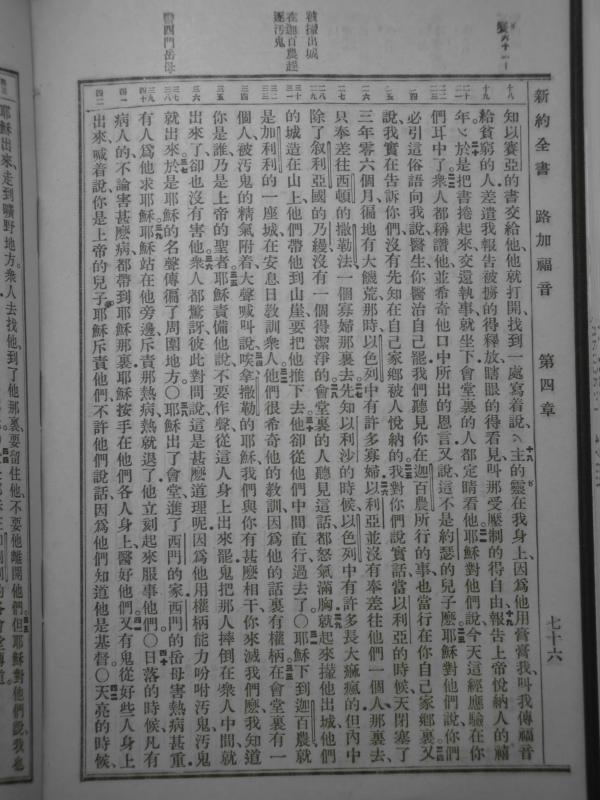 新約全書 路加福音 第四章 七十六
賽六十一 一
被攆出城
在迦百農趕
逐汚鬼
醫西門岳母
知以賽亞的書交給他他就打開找到一處寫着說主的靈在我身上因爲他用膏膏我叫我傳福音
給貧窮的人差遣我報告被擄的得釋放瞎眼的得看見叫那受壓制的得自由報告上帝悅納人的禧
年於是把書捲起來交還執事就坐下會堂裏的人都定睛看他耶穌對他們說今天這經應驗在你
們耳中了衆人都稱讚他並希奇他口中所出的恩言又說這不是約瑟的兒子麼耶穌對他們說你們
必引這俗語向我說醫生你醫治自己罷我們聽見你在迦百農所行的事也當行在你自己家鄉裏又
說我實在告訴你們沒有先知在自己家鄉被人悅納的我對你們說實話當以利亞的時候天閉塞了
三年零六個月徧地有大饑荒那時以色列中有許多寡婦以利亞並沒有奉差往他們一個人那裏去
只奉差往西頓的撒勒法一個寡婦那裏去先知以利沙的時候以色列中有許多長大痲瘋的但內中
除了叙利亞國的乃縵沒有一個得潔淨的會堂裏的人聽見這話都怒氣滿胸就起來攆他出城他們
的城造在山上他們帶他到山崖要把他推下去他卻從他們中間直行過去了〇耶穌下到迦百農就
是加利利的一座城在安息日敎訓衆人他們很希奇他的敎訓因爲他的話裏有權柄在會堂裏有一
個人被汚鬼的精氣附着大聲喊叫說唉拿撒勒的耶穌我們與你有甚麼相干你來滅我們麼我知道
你是誰乃是上帝的聖者耶穌責備他說不要作聲從這人身上出來罷鬼把那人摔倒在衆人中間就
出來了卻也沒有害他衆人都驚訝彼此對問說這是甚麼道理呢因爲他用權柄能力吩咐汚鬼汚鬼
就出來於是耶穌的名聲傳徧了周圍地方〇耶穌出了會堂進了西門的家西門的岳母害熱病甚重
有人爲他求耶穌耶穌站在他旁邊斥責那熱病熱就退了他立刻起來服事他們〇日落的時候凡有
病人的不論害甚麼病都帶到耶穌那裏耶穌按手在他們各人身上醫好他們又有鬼從好些人身上
出來喊着說你是上帝的兒子耶穌斥責他們不許他們說話因爲他們知道他是基督〇天亮的時候
耶穌出來走到曠野地方衆人去找他到了他那裏要留住他不要他離開他們但耶穌對他們說我也